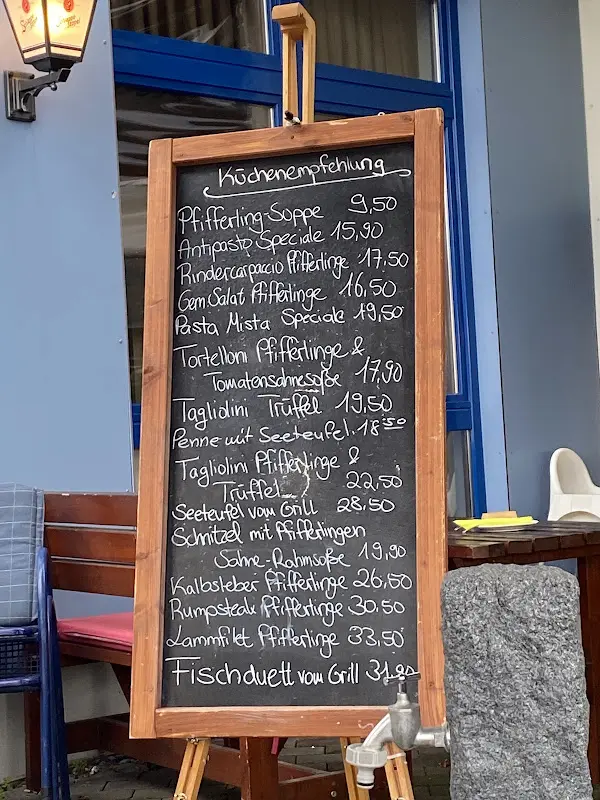 Küchenempfehlung
Pfifferling-Suppe 9,50
Antipasto Speciale 15,90
Rindercarpaccio Pfifferlinge 17.50
Gem.Salat Pfifferlinge 16,50
Pasta Mista Speciale 19,50
Tortelloni Pfifferlinge &
Tomatensahnesoße 17,90
Tagliolini Trüffel 19,50
Penne mit Seeteufel. 18 50
Tagliolini Pfifferlinge &
Trüffel 22,50
Seeteufel vom Grill 28,50
Schnitzel mit Pfifferlingen
Sahne-Rahmsoße 19,90
Kalbsleber Pfifferlinge 26,50
Rumpsteak Pfifferlinge 30.50
Lammfilet Pfifferlinge 33,50
Fischduett vom Grill 31,90